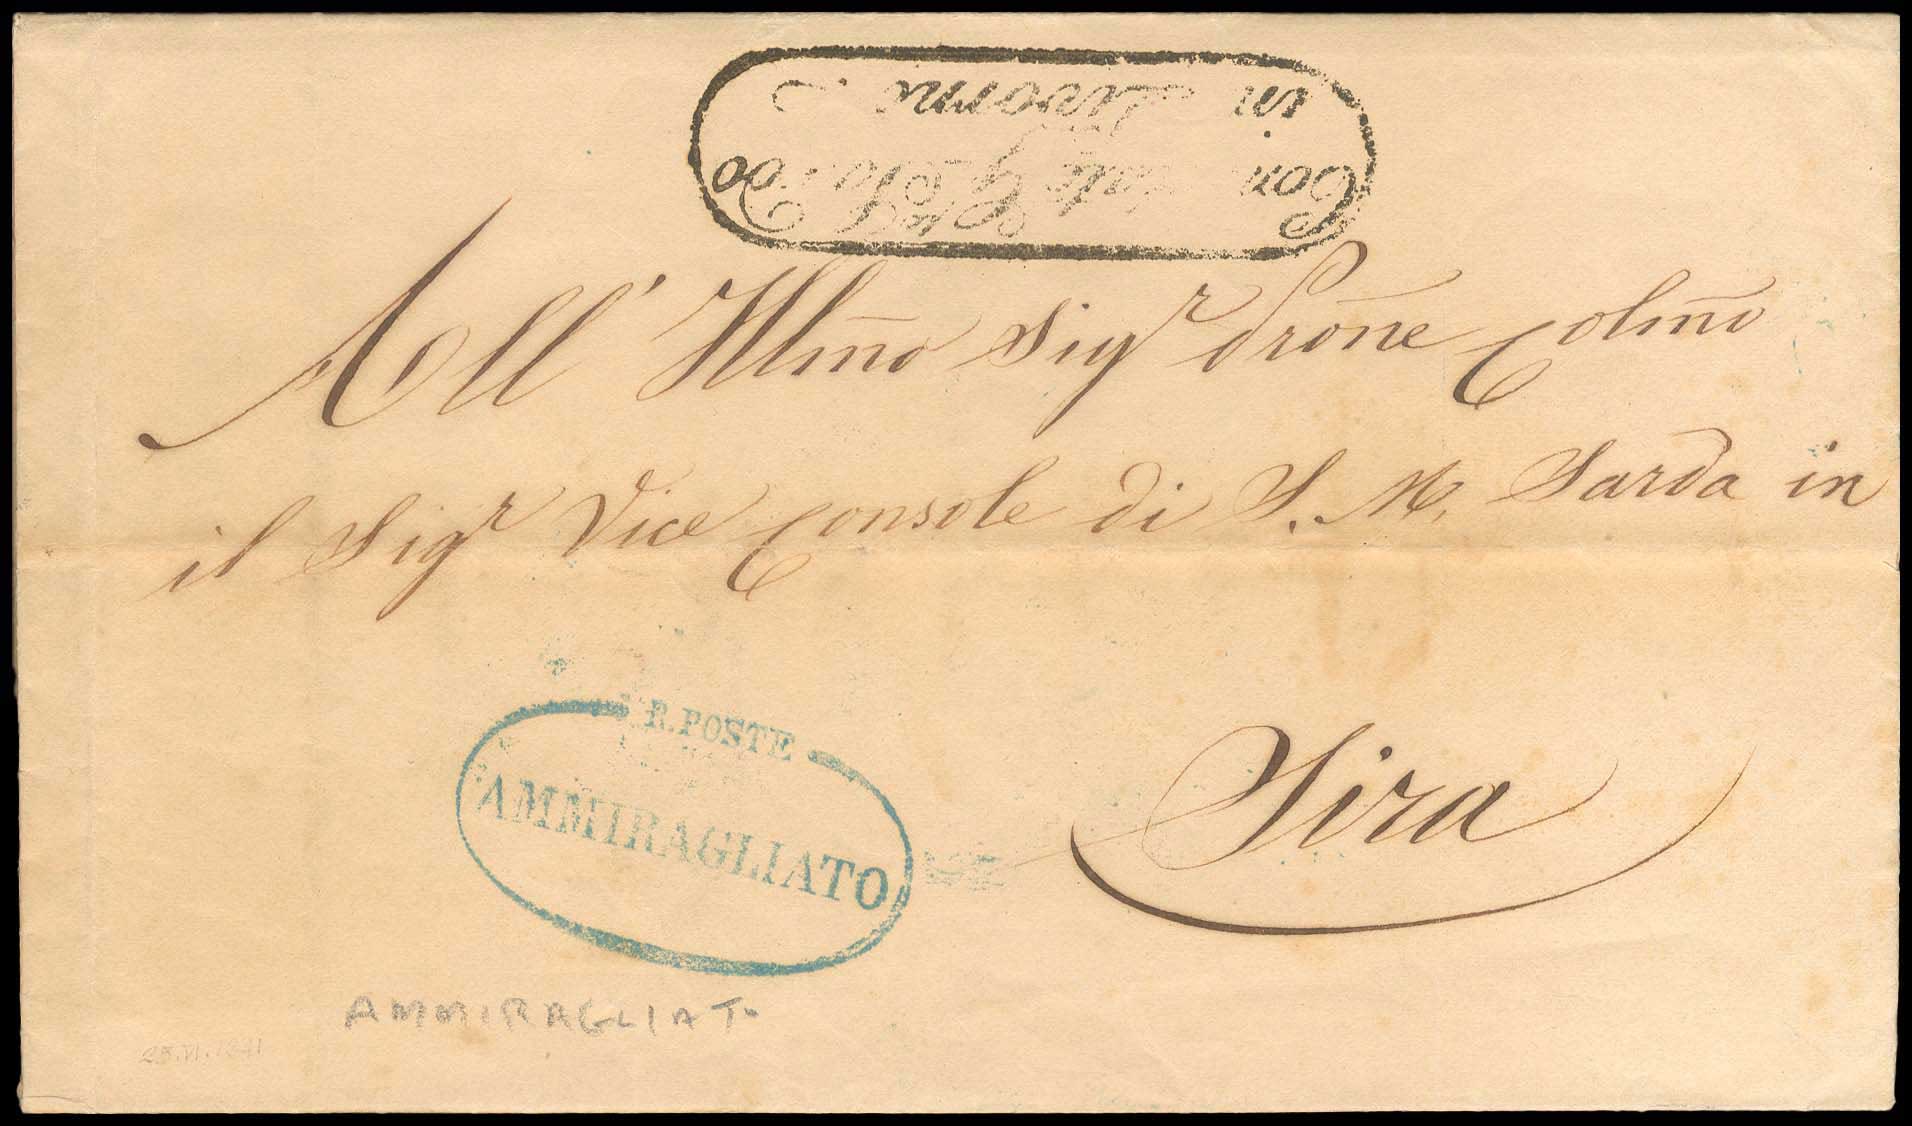 in Livorno
All' Illmo Sigr Prone Colmo
il Sigr Vice Console di S. M. Sarda in
Sira
R. POSTE
AMMIRAGLIATO
AMMIRAGLIATO